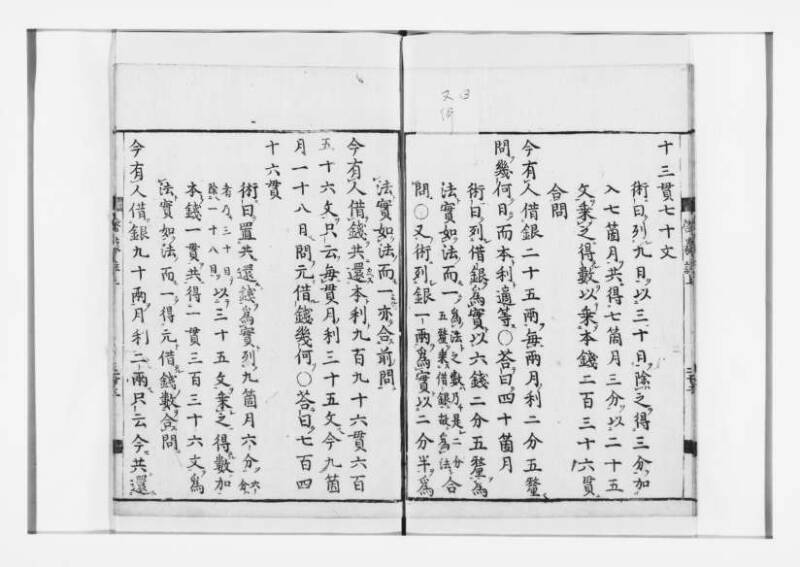 十三貫七十文
術曰列九日以三十日除之得三分加
入七箇月共得七箇月三分以二十五
文乘之得數以乘本錢二百三十六貫
合問
今有人借銀二十五兩每兩月利二分五釐
問幾何日而本利適等○荅曰四十箇月
術曰列借銀爲實以六錢二分五釐爲
法實如法而一爲法之數乃是二分五釐乘借銀故爲法合
問○又術列銀一兩爲實以二分半爲
法實如法而一亦合前問
今有人借錢共還本利九百九十六貫六百
五十六文只云每貫月利三十五文今九箇
月一十八日問元借錢幾何○荅曰七百四
十六貫
術曰置共還錢爲實列九箇月六分六分
者乃三十日除一十八日以三十五文乘之得數加
本錢一貫共得一貫三百三十六文爲
法實如法而一得元借錢數合問
今有人借銀九十兩月利二兩只云今共還